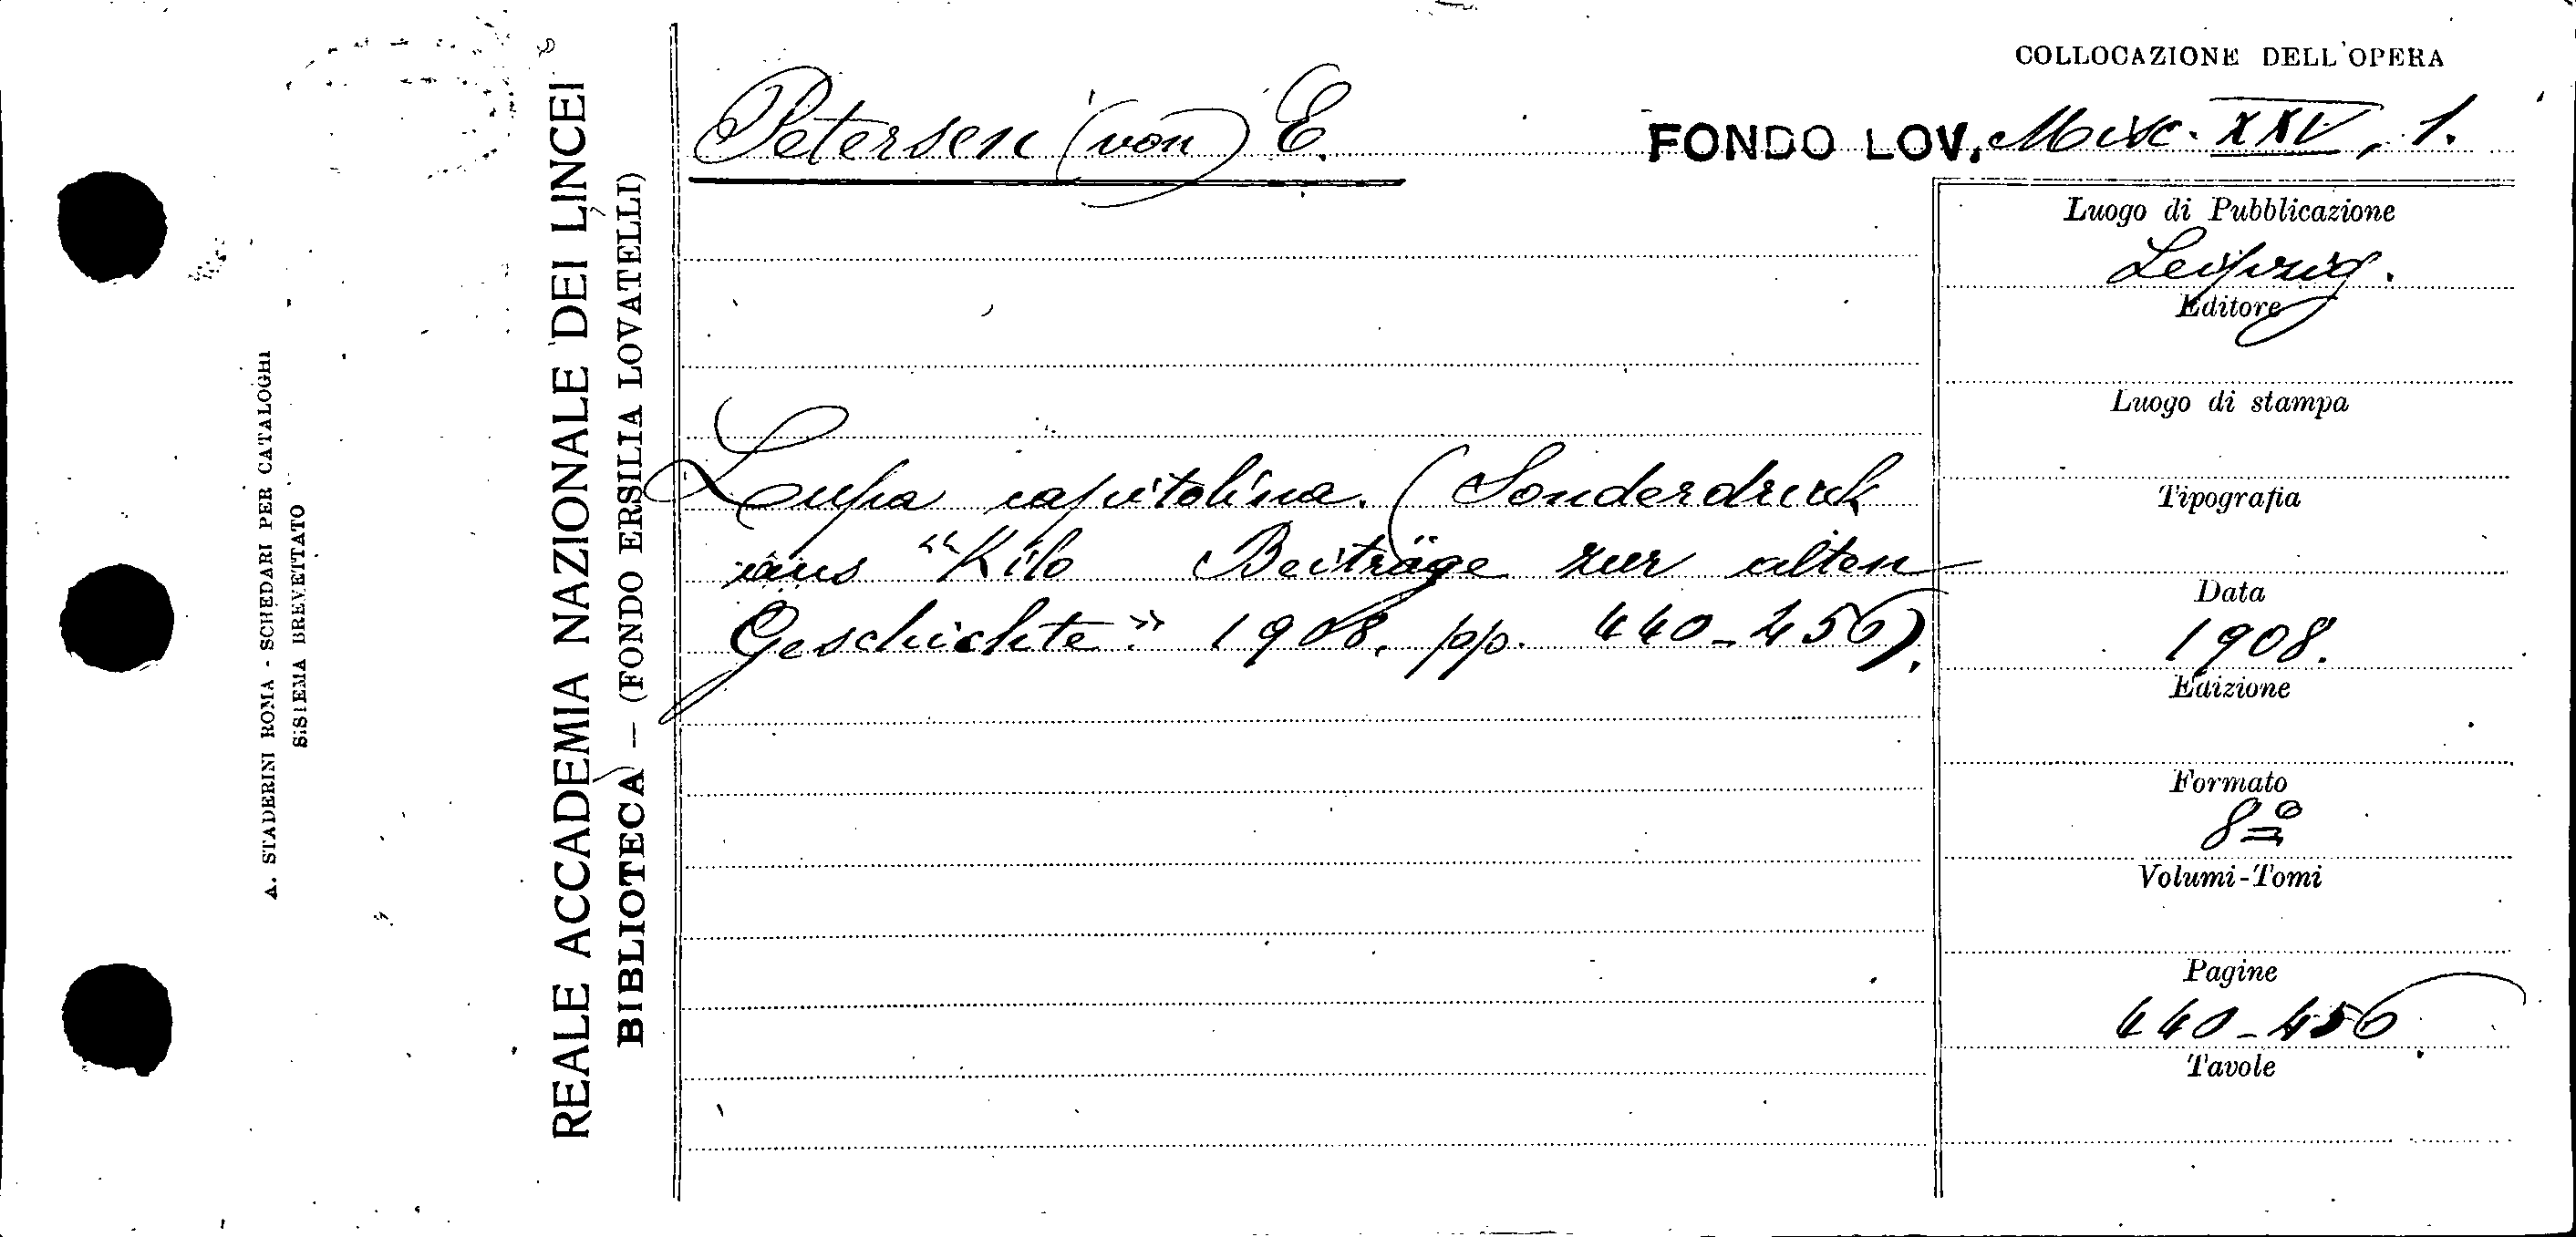 COLLOCAZIONE DELL'OPERA
Petersen (von) E.
FONDO LOV. Misc. XXV, 1.
Luogo di Pubblicazione
Leipzig.
Editore
Luogo di stampa
Lupa capitolina. (Sonderdruck
aus "Kilo Beiträge zur alten
Geschichte" 1908. pp. 440-456).
Tipografia
Data
1908.
Edizione
Formato
8º
Volumi-Tomi
Pagine
440-456
Tavole
REALE ACCADEMIA NAZIONALE DEI LINCEI
BIBLIOTECA — (FONDO ERSILIA LOVATELLI)
A. STADERINI ROMA - SCHEDARI PER CATALOGHI
SISTEMA BREVETTATO